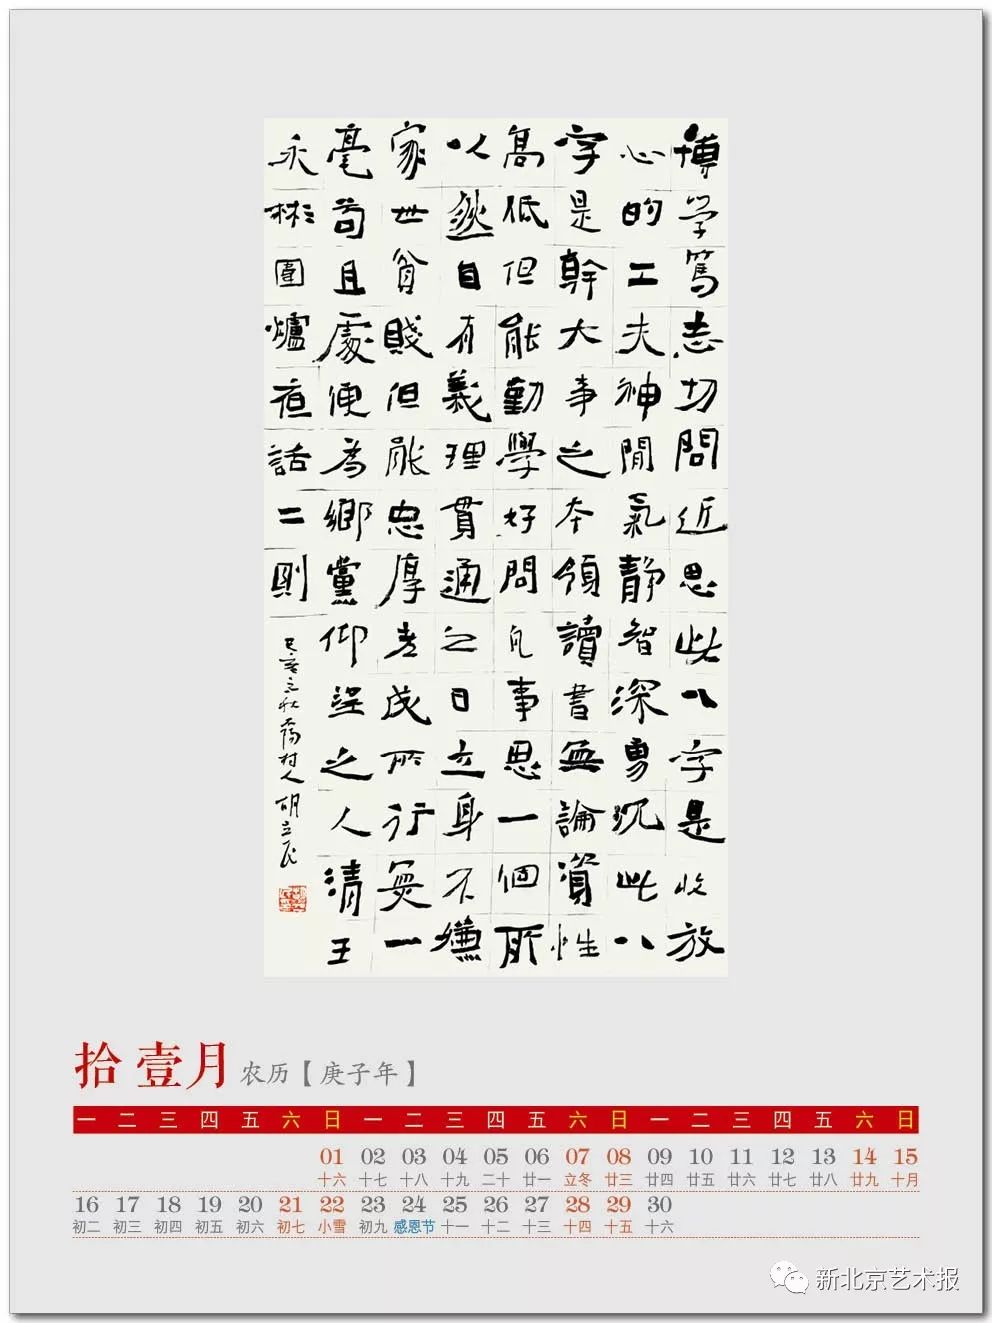 博學篤志切問近思此八字是收放
心的工夫神閒氣靜智深勇沉此八
字是幹大事之本領讀書無論資性
高低但能勤學好問凡事思一個所
以然自有義理貫通之日立身不嫌
家世貧賤但能忠厚老成所行無一
毫苟且處便為鄉黨仰望之人清王
永彬圍爐夜話二則
己亥之秋 村人胡立民
拾壹月 农历【庚子年】
一 二 三 四 五 六 日 一 二 三 四 五 六 日 一 二 三 四 五 六 日
01 02 03 04 05 06 07 08 09 10 11 12 13 14 15
十六 十七 十八 十九 二十 廿一 立冬 廿三 廿四 廿五 廿六 廿七 廿八 廿九 十月
16 17 18 19 20 21 22 23 24 25 26 27 28 29 30
初二 初三 初四 初五 初六 初七 小雪 初九 感恩节 十一 十二 十三 十四 十五 十六
新北京艺术报